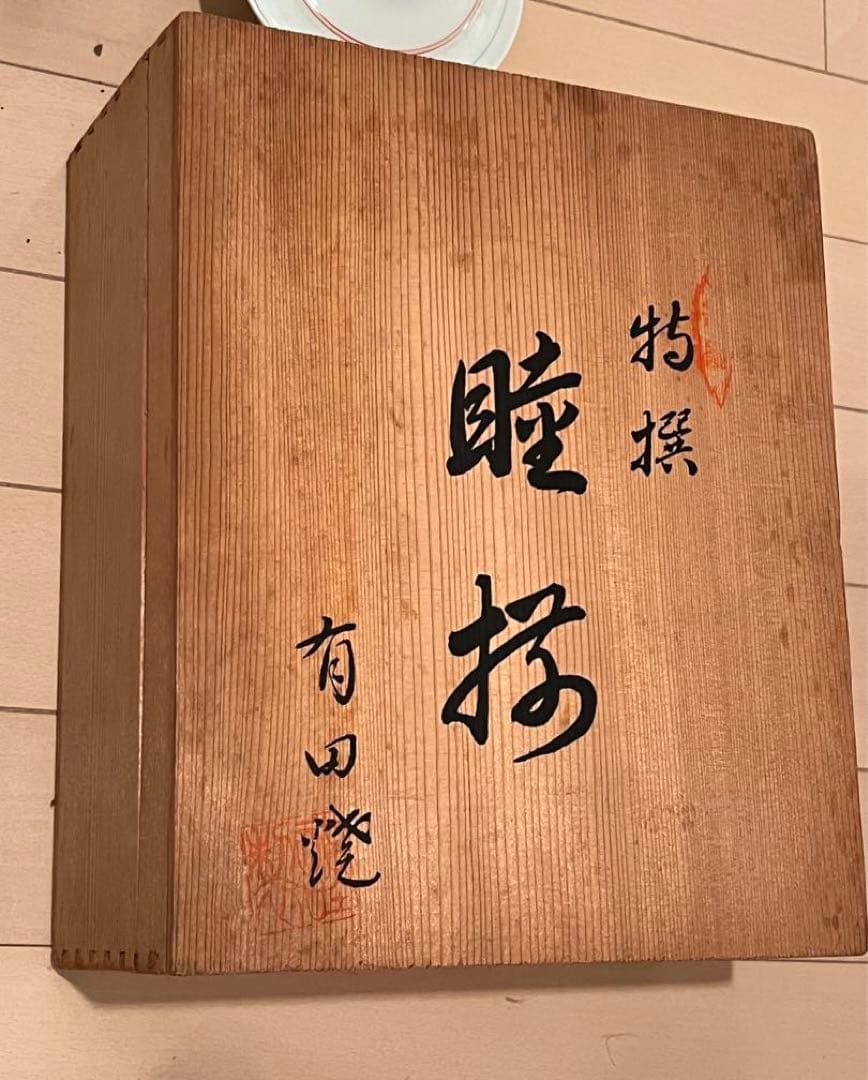 特撰
睦揃
有田燒